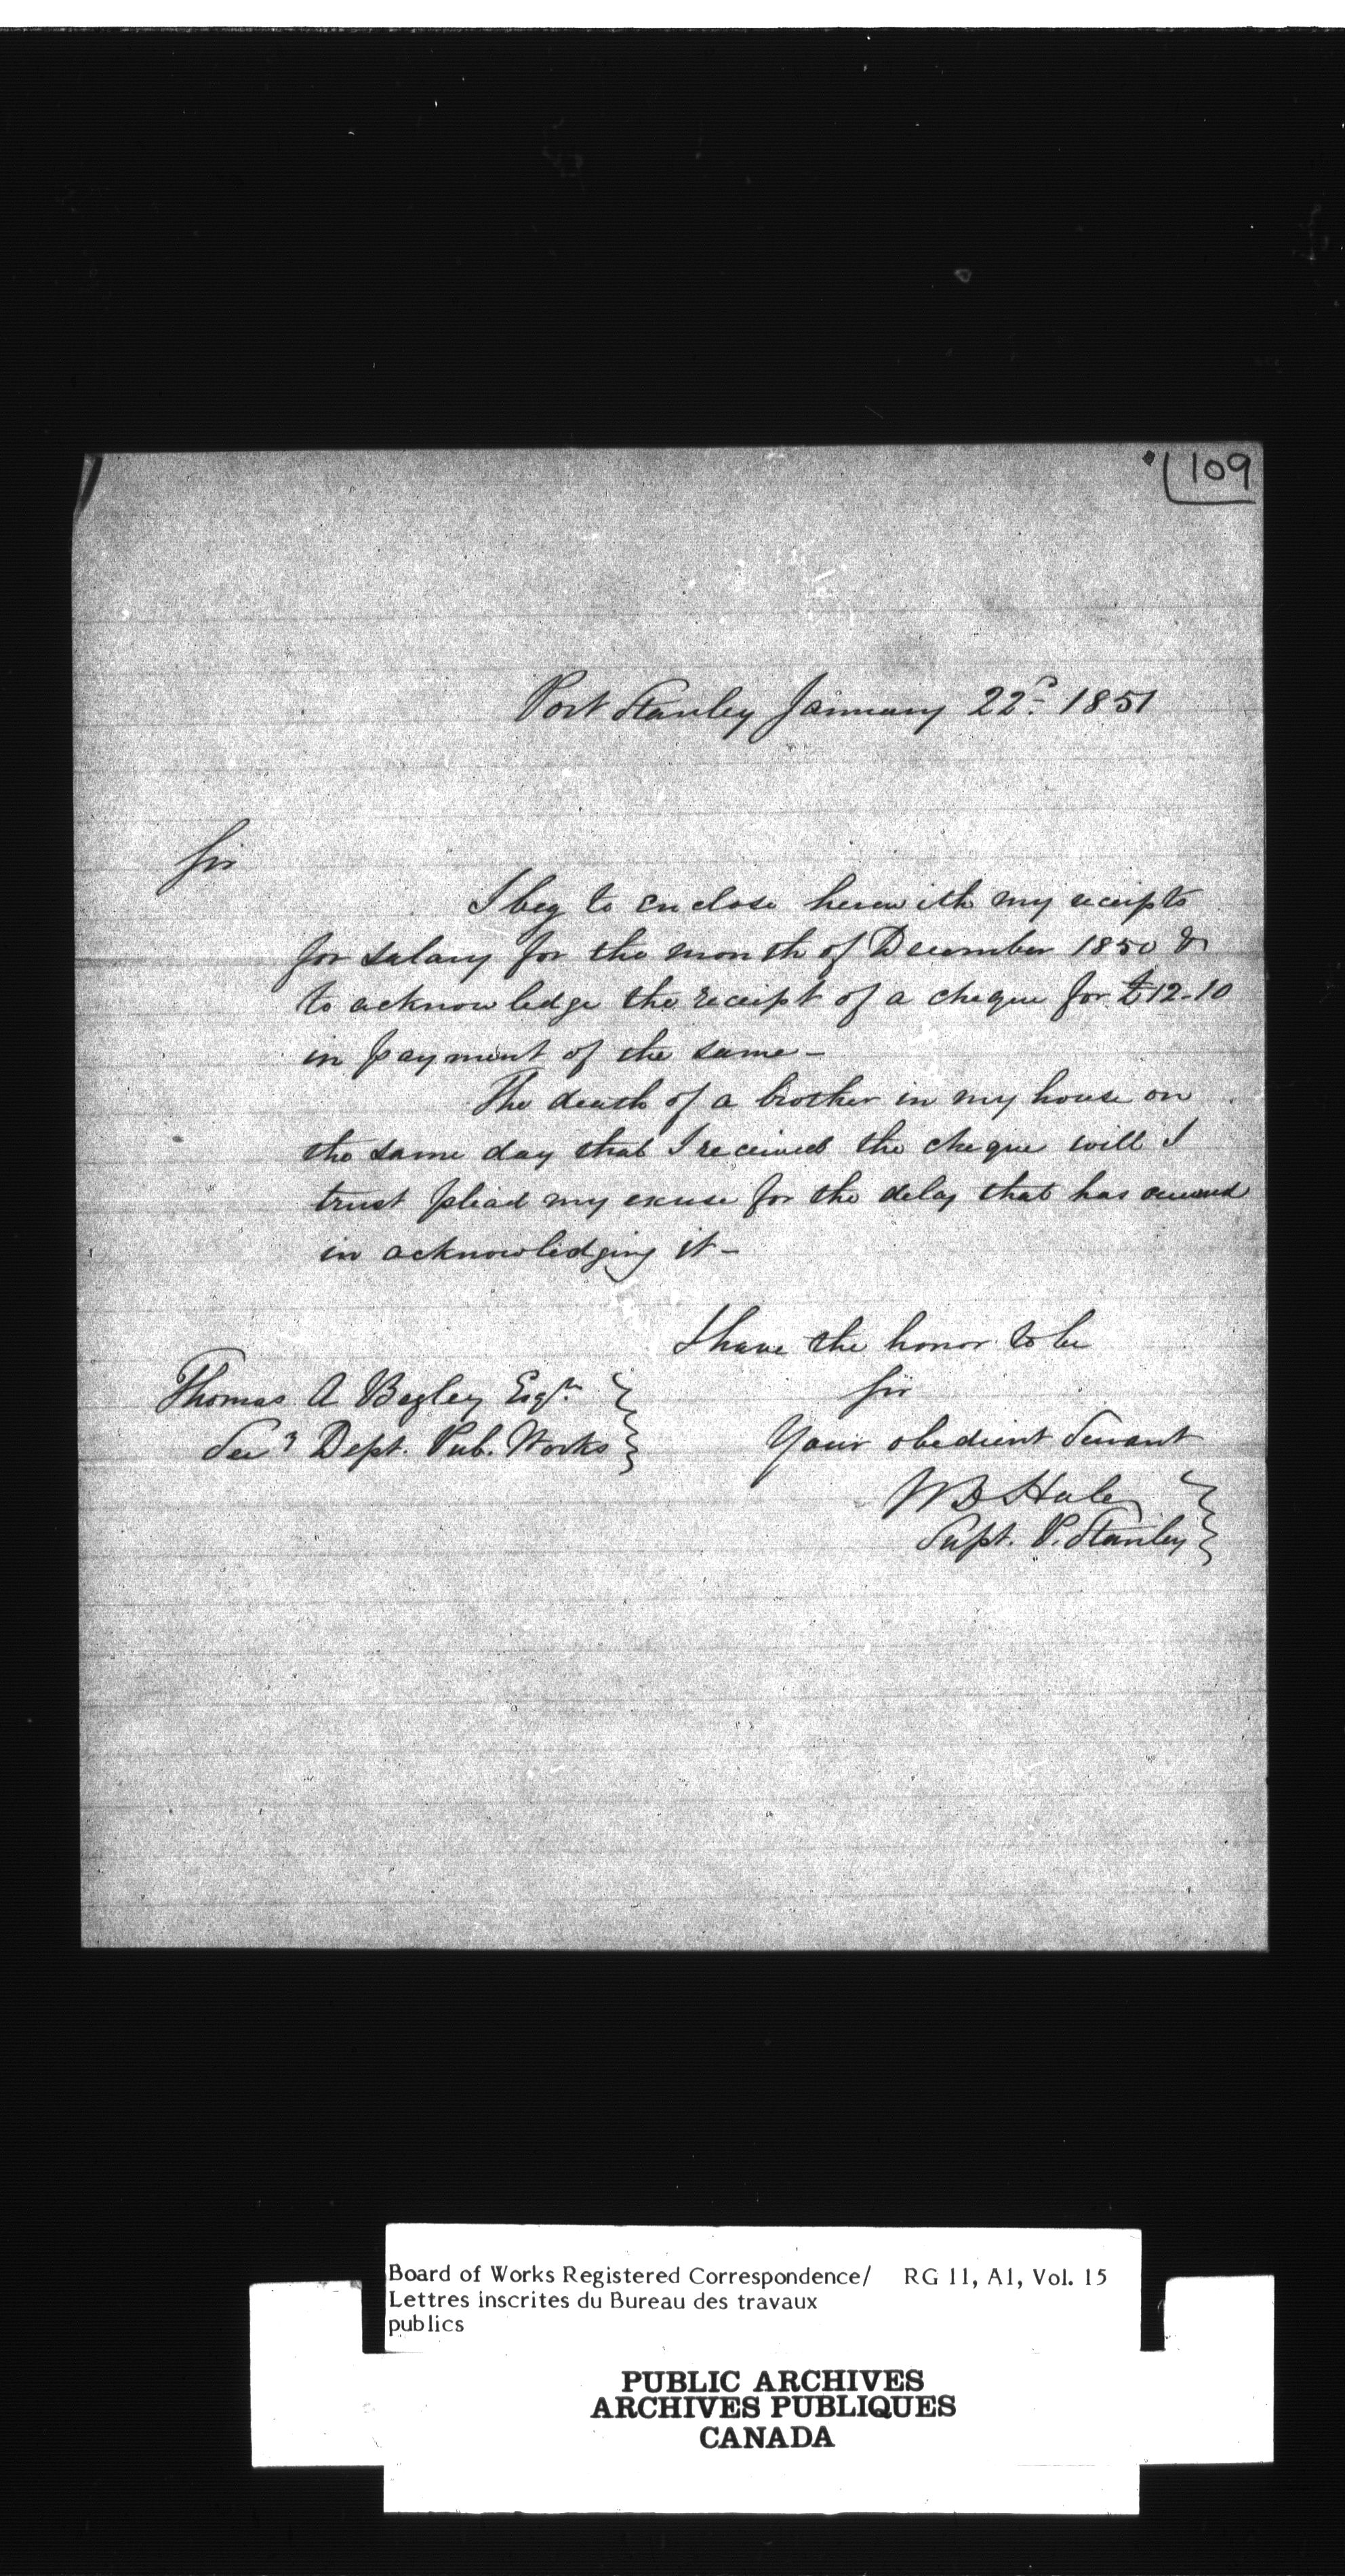 109
Port Stanley January 22d. 1851
Sir
I beg to enclose herewith my receipts
for salary for the month of December 1850 &
to acknowledge the receipt of a cheque for £12-10
in payment of the same-
The death of a brother in my house on
the same day that I received the cheque will I
trust plead my excuse for the delay that has occurred
in acknowledging it-
I have the honor to be
Sir
Your obedient Servant
Thomas A Begley Esqr.
Secy Dept. Pub. Works
W B Hale
Supt. P. Stanley
Board of Works Registered Correspondence/ RG 11, A1, Vol. 15
Lettres inscrites du Bureau des travaux
publics
PUBLIC ARCHIVES
ARCHIVES PUBLIQUES
CANADA